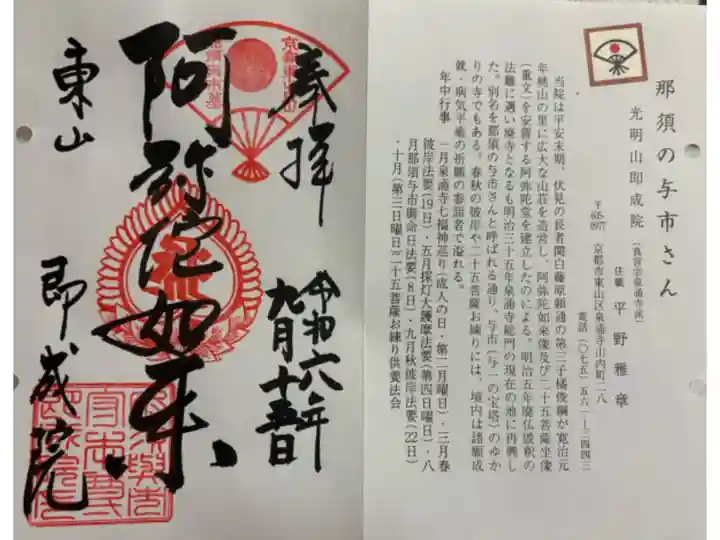 奉拝
令和六年
九月十五日
阿弥陀如来
東山
即成院
那須の与市さん
光明山即成院
(真言宗泉涌寺派)
住職 平野雅章
〒605-0977 京都市東山区泉涌寺山内町二八
電話(〇七五)五六一―三四四三
当院は平安末期、伏見の長者関白藤原頼通の第三子橘俊綱が寛治元
年桃山の里に広大な山荘を造営し、阿弥陀如来像及び二十五菩薩坐像
(重文)を安置する阿弥陀堂を建立したのによる。明治五年廃仏毀釈の
法難に遇い廃寺となるも明治三十五年泉涌寺総門の現在の地に再興し
た。別名を那須の与市さんと呼ばれる通り、与市(与一の宝塔)のゆか
りの寺でもある。春秋の彼岸や二十五菩薩お練りには、境内は諸願成
就・病気平癒の祈願の参詣者で溢れる。
年中行事
一月泉涌寺七福神巡り(成人の日・第二月曜日)・三月春
彼岸法要(19日)・五月採灯大護摩法要(第四日曜日)・八
月那須与市御命日法要(8日)・九月秋彼岸法要(22日)
・十月(第三日曜日)二十五菩薩お練り供養法会